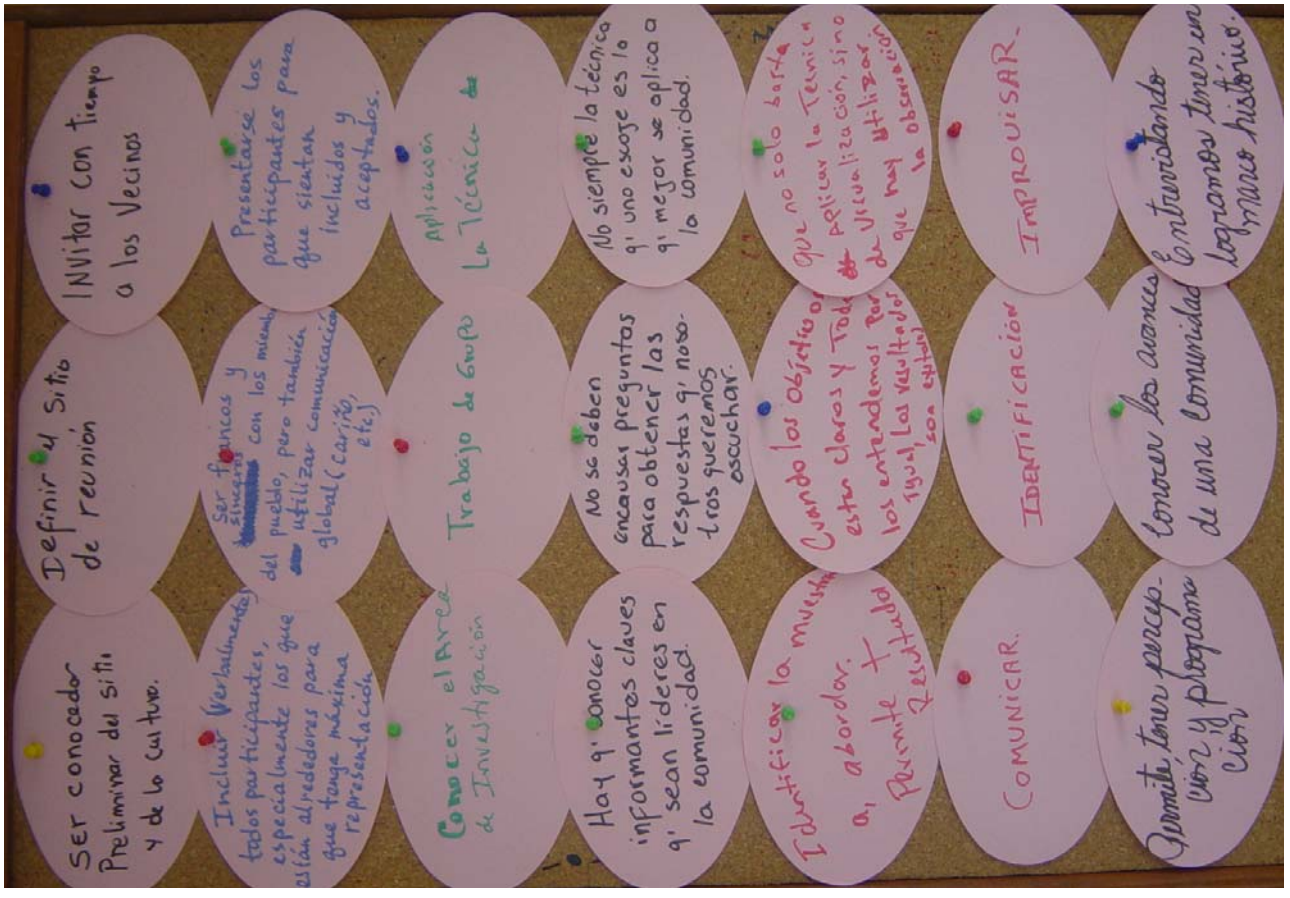 SER CONOCEDOR
Preliminar del sitio
y de la cultura.
Definir el sitio
de reunión
INVITAR CON TIEMPO
a los Vecinos
Incluir Verbalmente,
todos participantes,
especialmente los que
están alrededores para
que tenga máxima
representación
Ser francos y
sinceros con los miemb
del pueblo, pero también
utilizar comunicación
global (cariño,
etc.)
Presentarse los
participantes para
que sientan
incluidos y
aceptados.
Conocer el Area
de Investigación
Trabajo de Grupo
Aplicación
La Técnica de
Hay q' conocer
informantes claves
q' sean líderes en
la comunidad.
No se deben
encausar preguntas
para obtener las
respuestas q' noso-
tros queremos
escuchar.
No siempre la técnica
q' uno escoje es la
q' mejor se aplica a
la comunidad.
Identificar la muestra
a, abordar.
Permite +
Cuando los objetivos
estan claros y Todos
los entendemos por
igual, Los resultados
son exitosos
Que no solo basta
Aplicar la Tecnica
de Visualización, sino
que hay Utilizar
la observación
COMUNICAR.
IDENTIFICACIÓN
IMPROVISAR.
Permite tener percep-
ción y programa
ción
Conocer los avances
de una Comunidad
Entrevistando
logramos tener un
marco histórico.